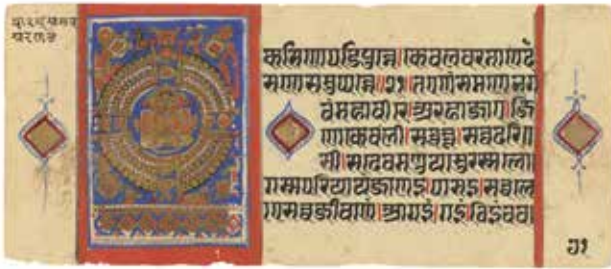 कसिणेपडिपुन्ने।केवलवरनाणदं
सणेसमुप्पन्ने॥२१ तएणंसमणेभग
वंमहावीरे।अरहाजाए।जि
णेकेवली।सव्वन्नू।सव्वदरि
सी।सदेवमणुयासुरस्सलो
गस्सपरियायंजाणइ।पासइ।सव्वलो
एसव्वजीवाणं।आगइं।गइं।ठिइंचव